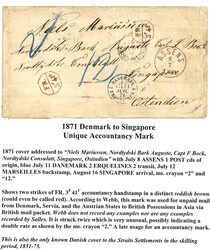 Niels Mariussen
Nordydski Bark Auguste Capt F Bock
Nordydski Consulatt
Singapore
Ostindien
1871 Denmark to Singapore
Unique Accountancy Mark
1871 cover addressed to "Niels Mariassen, Nordydski Bark Auguste, Capt F Bock,
Nordydski Consulatt, Singapore, Ostindien" with July 8 ASSENS 1 POST cds of
origin, blue July 11 DANEMARK 2 ERQUELINES 2 transit, July 12
MARSEILLES backstamp, August 16 SINGAPORE arrival, ms. crayon "2" and
"12."
Shows two strikes of FR. 3f 41c accountancy handstamp in a distinct reddish brown
(could even be called red). According to Webb, this mark was used for unpaid mail
from Denmark, Servia, and the Austrian States to British Possessions in Asia via
British mail packet. Webb does not record any examples nor are any examples
recorded by Salles. It is struck twice which is very unusual, possibly indicating a
double rate as shown by the ms. crayon "2." A late usage for an accountancy mark.
This is also the only known Danish cover to the Straits Settlements in the skilling
period, 1851-75.